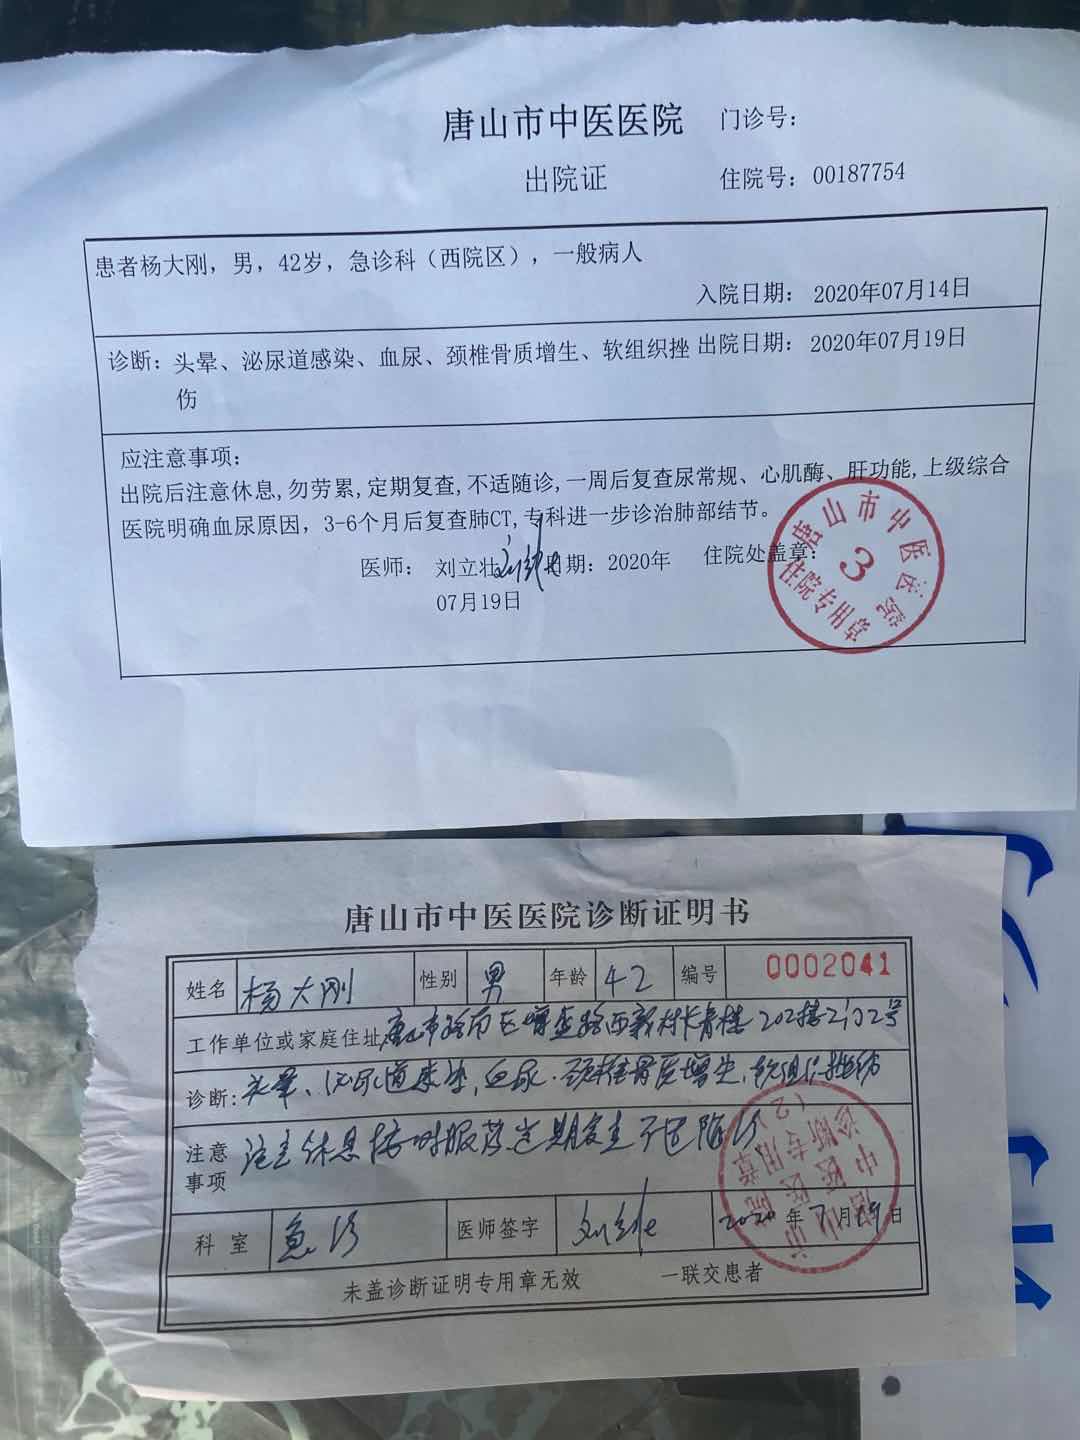 唐山市中医医院 门诊号：
出院证 住院号：00187754
患者杨大刚，男，42岁，急诊科（西院区），一般病人
入院日期： 2020年07月14日
诊断：头晕、泌尿道感染、血尿、颈椎骨质增生、软组织挫 出院日期： 2020年07月19日
伤
应注意事项：
出院后注意休息,勿劳累,定期复查,不适随诊,一周后复查尿常规、心肌酶、肝功能,上级综合
医院明确血尿原因，3-6个月后复查肺CT,专科进一步诊治肺部结节。
医师： 刘立壮 日期：2020年 住院处盖章：
07月19日
唐山市中医医院
3
住院专用章
唐山市中医医院诊断证明书
姓名 杨大刚 性别 男 年龄 42 编号 0002041
工作单位或家庭住址 唐山市路南区增盛路西新村长青楼202楼2门2号
诊断：头晕、泌尿道感染，血尿、颈椎骨质增生，软组织挫伤
注意 注意休息按时服药定期复查不适随诊
事项
科室 急诊 医师签字 2020年7月19日
唐山市中医医院
诊断专用章
(2)
未盖诊断证明专用章无效 一联交患者